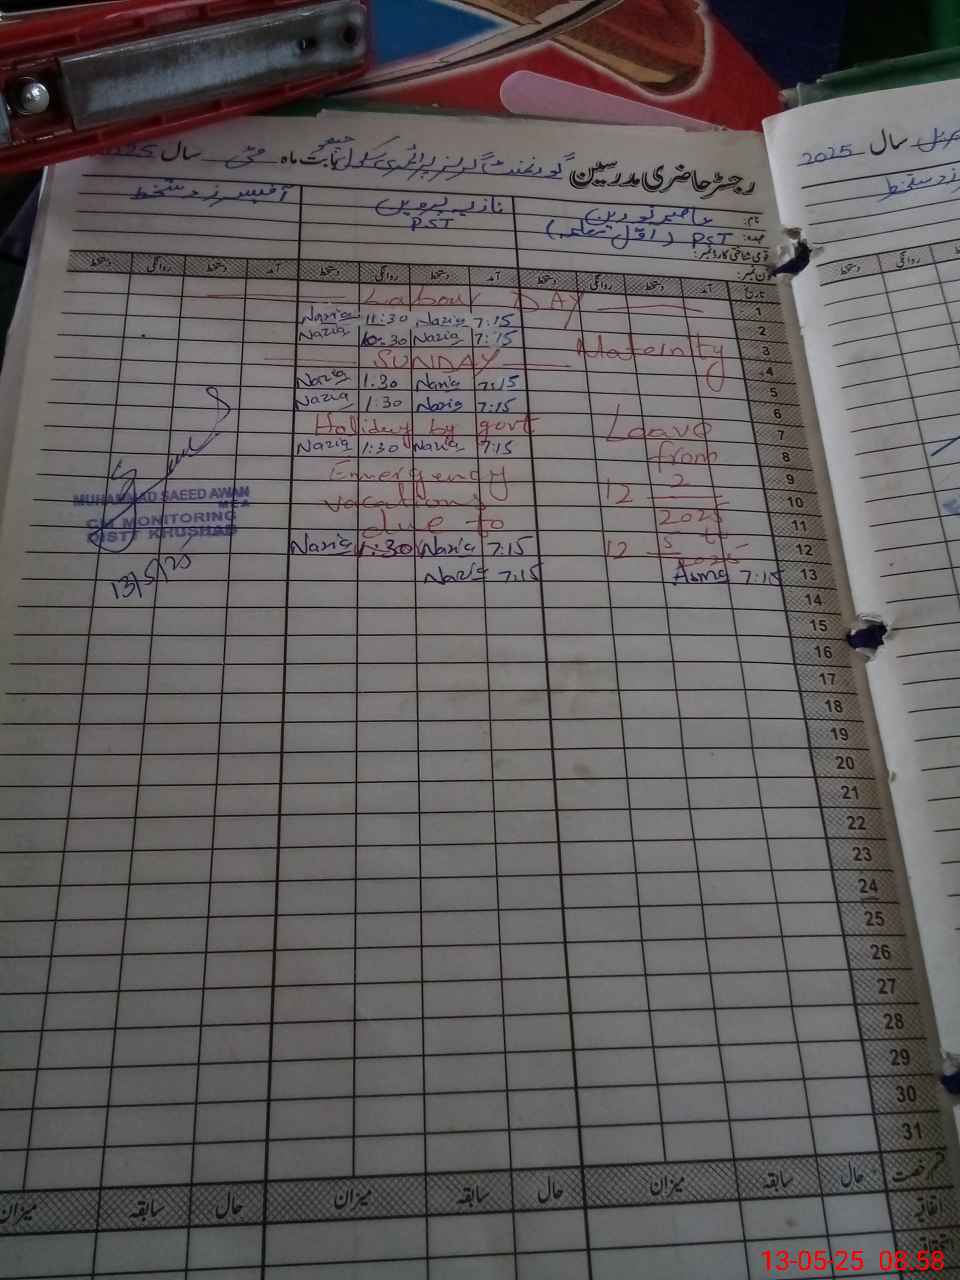 رجسٹر حاضری مدرسین گورنمنٹ گرلز پرائمری سکول بابت ماہ مئی سال 2025
نام:
نازیہ پروین
آفیسرز دستخط
عہدہ: PST (اول معلمہ)
PST
قومی شناختی کارڈ نمبر:
فون نمبر:
تاریخ آمد دستخط روانگی دستخط آمد دستخط روانگی دستخط آمد دستخط روانگی دستخط
1 Labour DAY
2 7:15 Nazia 11:30 Nazia
3 7:15 Nazia 10:30 Nazia
Maternity
4 SUNDAY
5 7:15 Nazia 1:30 Nazia
6 7:15 Nazia 1:30 Nazia
7 Holiday by govt
Leave
8 7:15 Nazia 1:30 Nazia
from
9 Emergency
12 2
10 vacations
2025
11 due to
12 7:15 Nazia 1:30 Nazia
12 5
2025
13 7:15 Asma 7:15 Nazia
14
15
16
17
18
19
20
21
22
23
24
25
26
27
28
29
30
31
قسم رخصت حال سابقہ میزان حال سابقہ میزان حال سابقہ میزان
اتفاقیہ
MUHAMMAD SAEED AWAN
MEA
CM MONITORING
DISTT KHUSHAB
13/5/25
سال 2025
دستخط روانگی
13-05-25 08:58